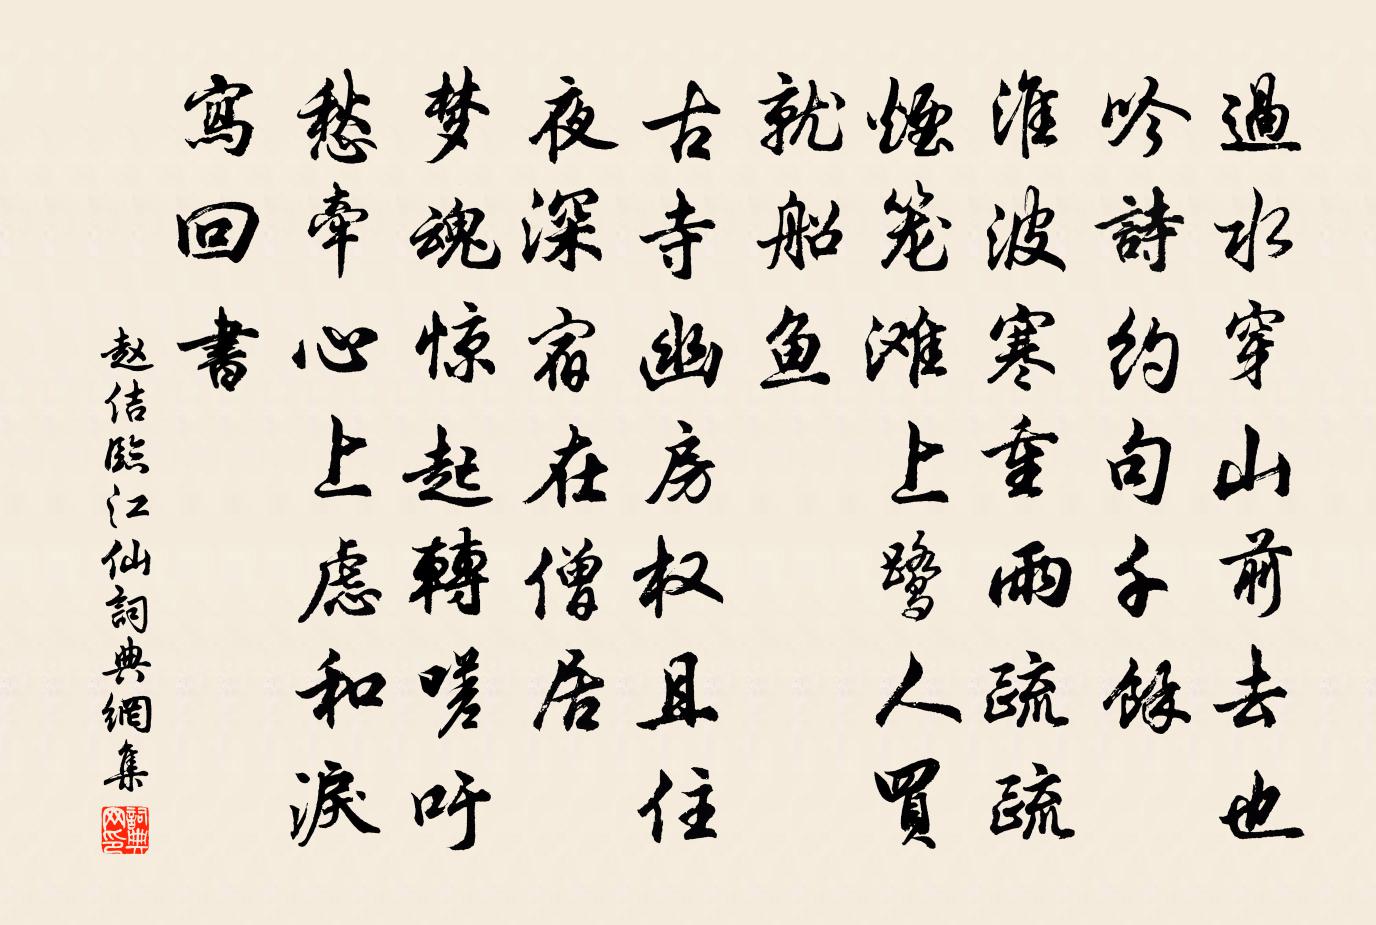 過水穿山前去也
吟詩約句千餘
淮波寒重雨疏疏
煙笼滩上鹭人買
就船鱼
古寺幽房权且住
夜深宿在僧居
梦魂惊起轉嗟吁
愁牽心上虑和淚
寫回書
赵佶臨江仙詞典網集
詞典网印